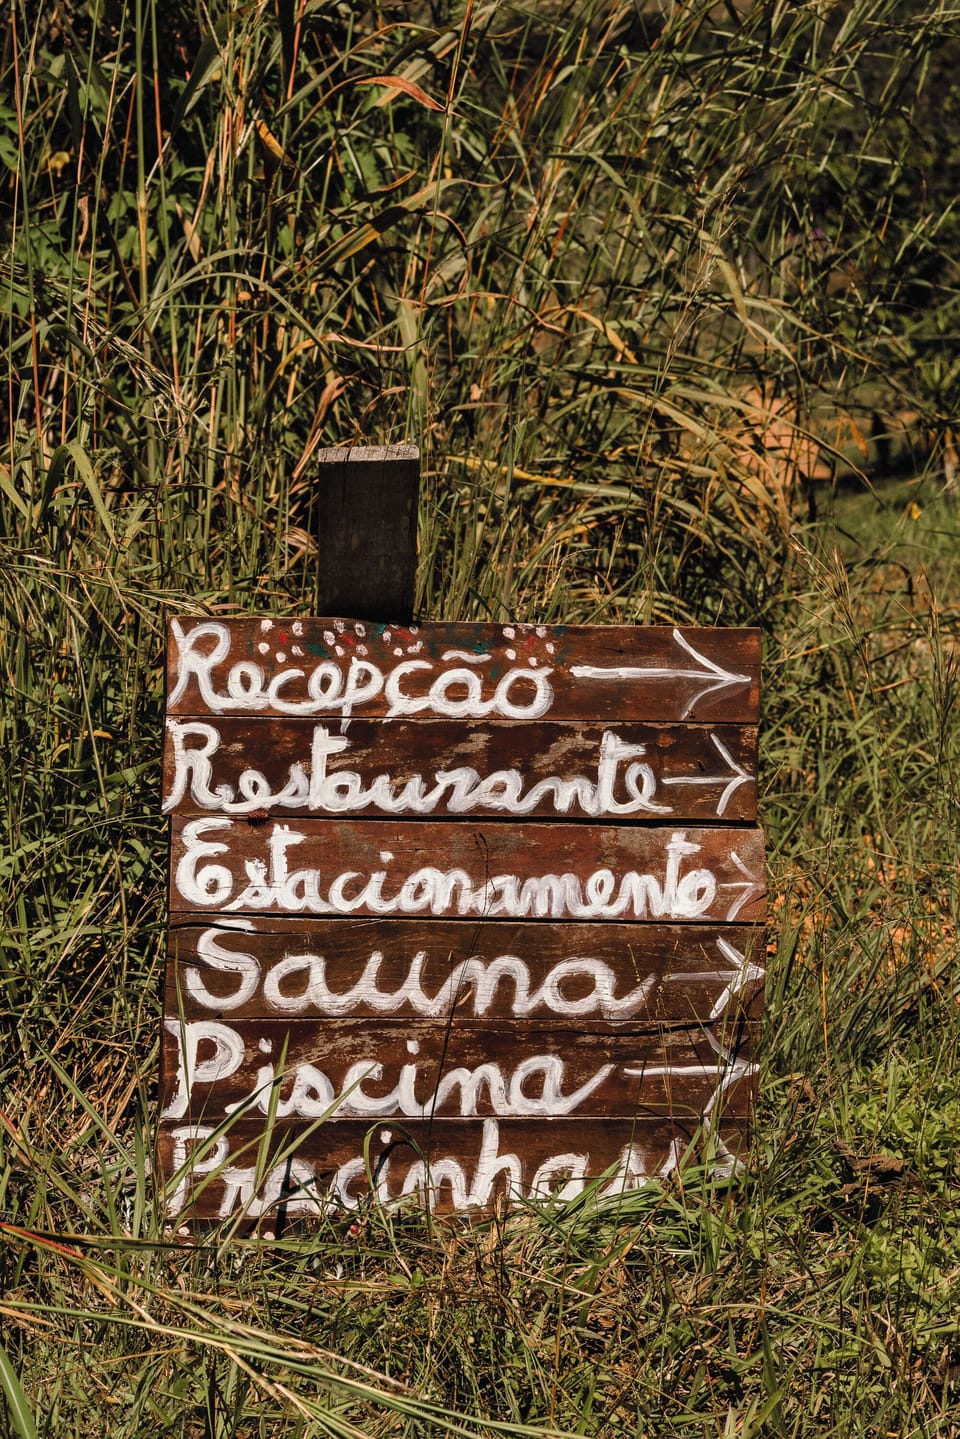 Recepção
Restaurante
Estacionamento
Sauna
Piscina
Pracinha